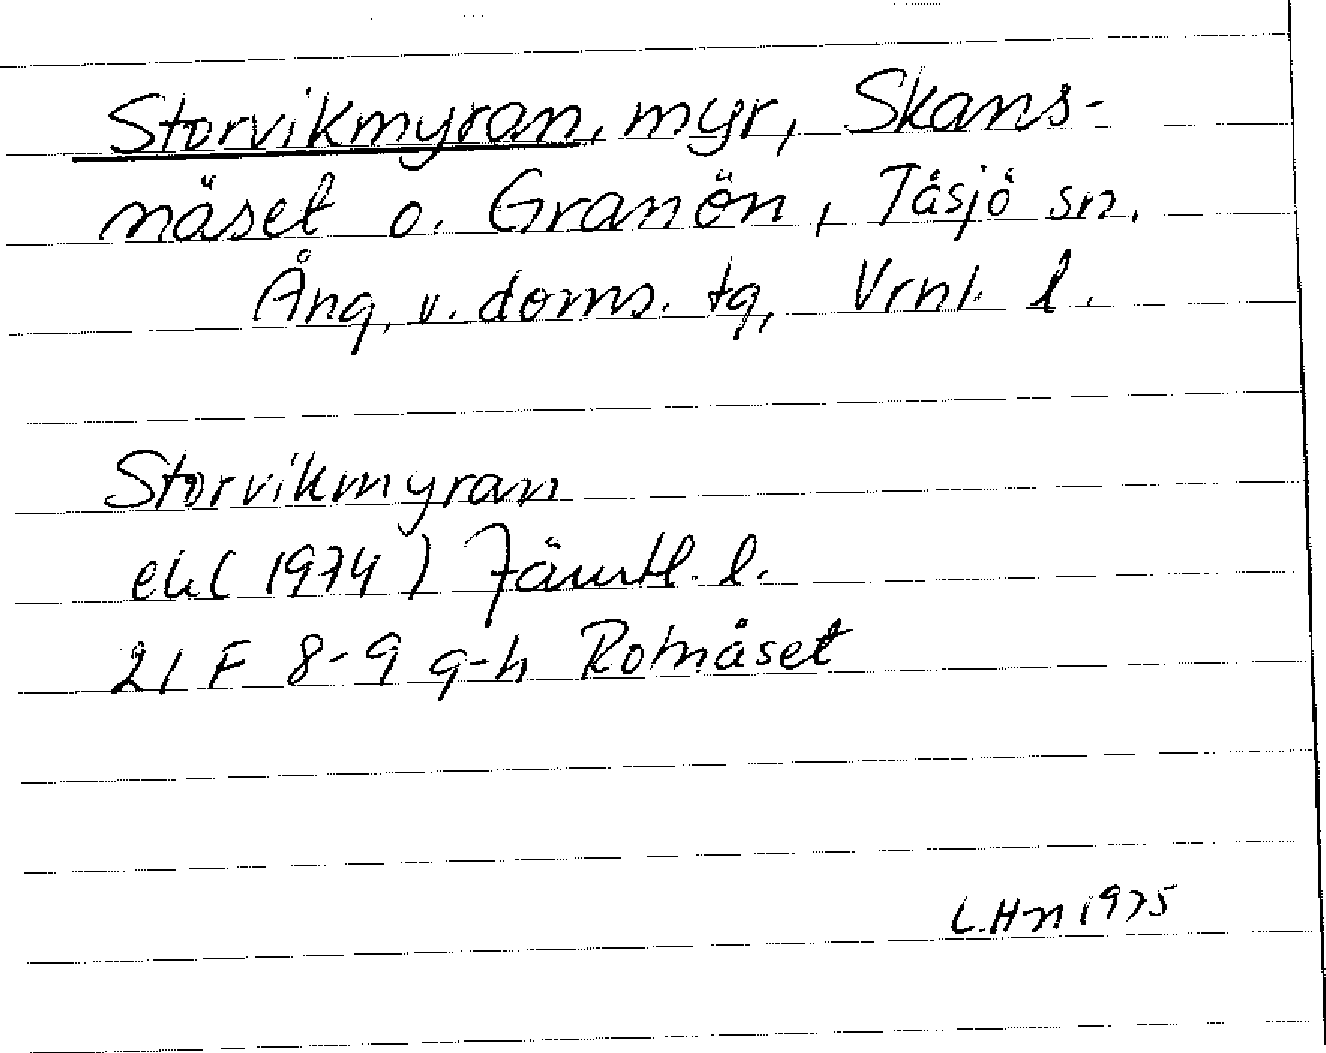 Storvikmyran, myr, Skans-
näset o. Granön, Tåsjö sn.
Ång. v. doms. tg, Vrnl. l.
Storvikmyran
ek (1974) Jämtl. l.
21 F 8-9 g-h Rotnäset
L. Hn 1975